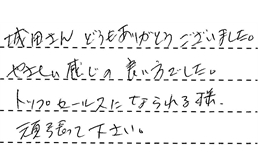 成田さん どうもありがとうございました。
やさしい感じの良い方でした。
トップセールスになられる様、
頑張って下さい。